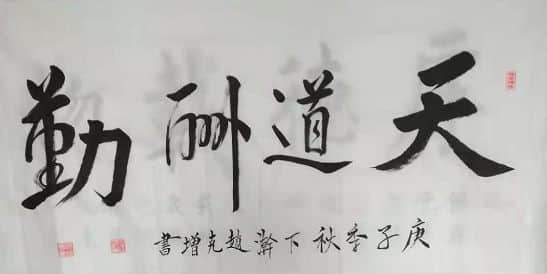 天道酬勤
庚子季秋下澣趙克增書